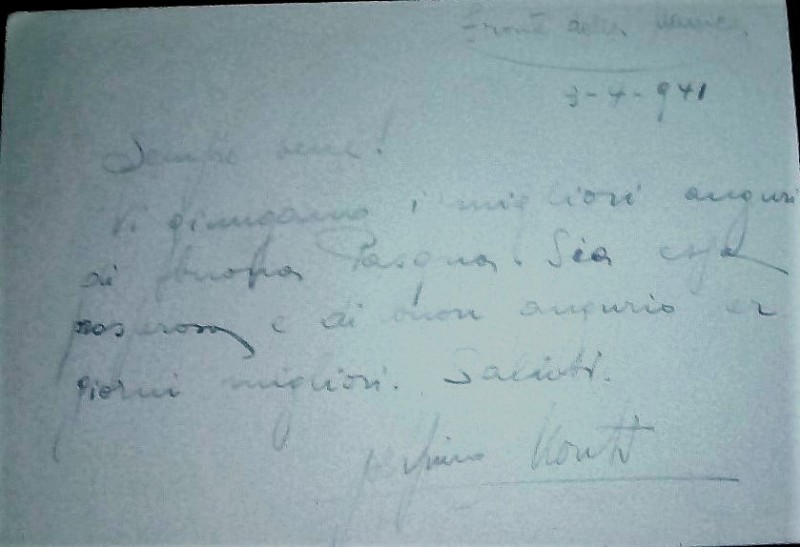 Fronte della
3-4-941
Sempre bene!
Vi giungano i migliori auguri
di buona Pasqua. Sia essa
e di buon augurio per
giorni migliori. Saluti.
Monti